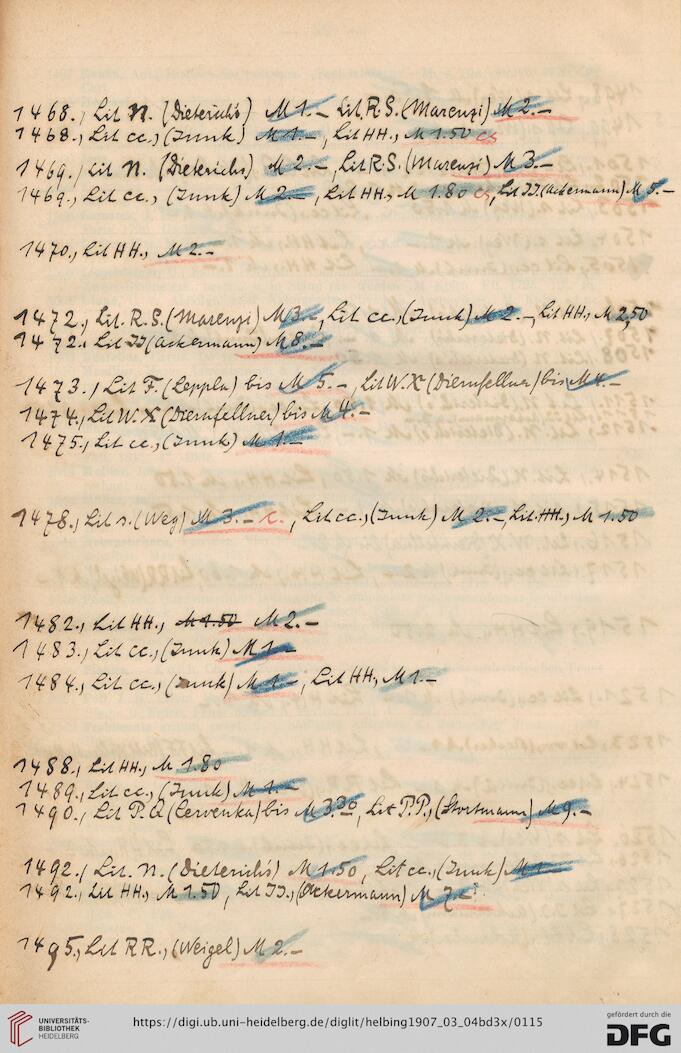 1468., Lit n. (Dieterichs) M 1.– Lit. R.S. (Marenzi) M 2.–
1468., Lit cc., (Junk) M 1.–, Lit HH., M 1.50 cs
1469., Lit n. (Dieterichs) M 2.–, Lit R.S. (Marenzi) M 3.–
1469., Lit cc., (Junk) M 2.–, Lit HH., M 1.80 cs, Lit JJ (Ackermann) M 5.–
1470., Lit HH., M 2.–
1472., Lit. R.S. (Marenzi) M 3.–, Lit cc., (Junk) M 2.–, Lit HH., M 2,50
1472.. Lit JJ (Ackermann) M 8.–
1473., Lit F. (Leppla) bis M 5.–, Lit W.X (Diernfellner) bis M 4.–
1474., Lit W.X (Diernfellner) bis M 4.–
1475., Lit cc., (Junk) M 1.–
1478., Lit s. (Weg) M 3.– c., Lit cc., (Junk) M 2.– Lit. HH., M 1.50
1482., Lit HH., M 1.50 M 2.–
1483., Lit cc., (Junk) M 1.–
1484., Lit cc., (Junk) M 1.–, Lit HH., M 1.–
1488., Lit HH., M 1.80
1489., Lit cc., (Junk) M 1.–
1490., Lit P.Q (Cervenka) bis M 3.30, Lit P.P., (Stortmann) M 9.–
1492., Lit. n. (Dieterichs) M 1.50, Lit cc., (Junk) M 1.–
1492., Lit HH., M 1.50, Lit JJ., (Ackermann) M 7.–
1495., Lit RR., (Weigel) M 2.–
UNIVERSITÄTS-
BIBLIOTHEK
HEIDELBERG
https://digi.ub.uni-heidelberg.de/diglit/helbing1907_03_04bd3x/0115
gefördert durch die
DFG